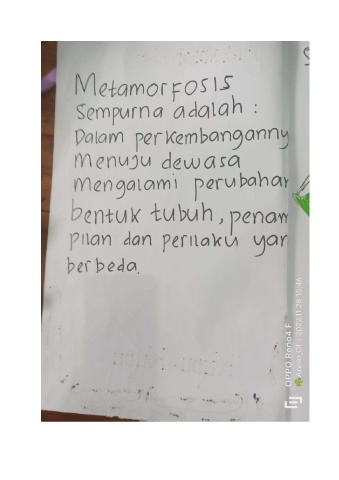 Metamorfosis
Sempurna adalah :
Dalam perkembanganny
menuju dewasa
mengalami perubahan
bentuk tubuh, penam
pilan dan perilaku yan
berbeda.
OPPO Reno4 F
2022.11.28 15:46